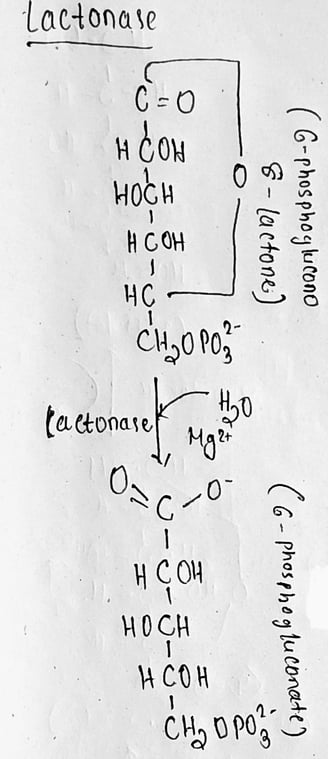 Lactonase
C=O
HCOH
HOCH
HCOH
HC
CH₂OPO₃²⁻
O
(6-phosphoglucono
δ-lactone)
Lactonase
H₂O
Mg²⁺
O=C-O⁻
HCOH
HOCH
HCOH
CH₂OPO₃²⁻
(6-phosphogluconate)